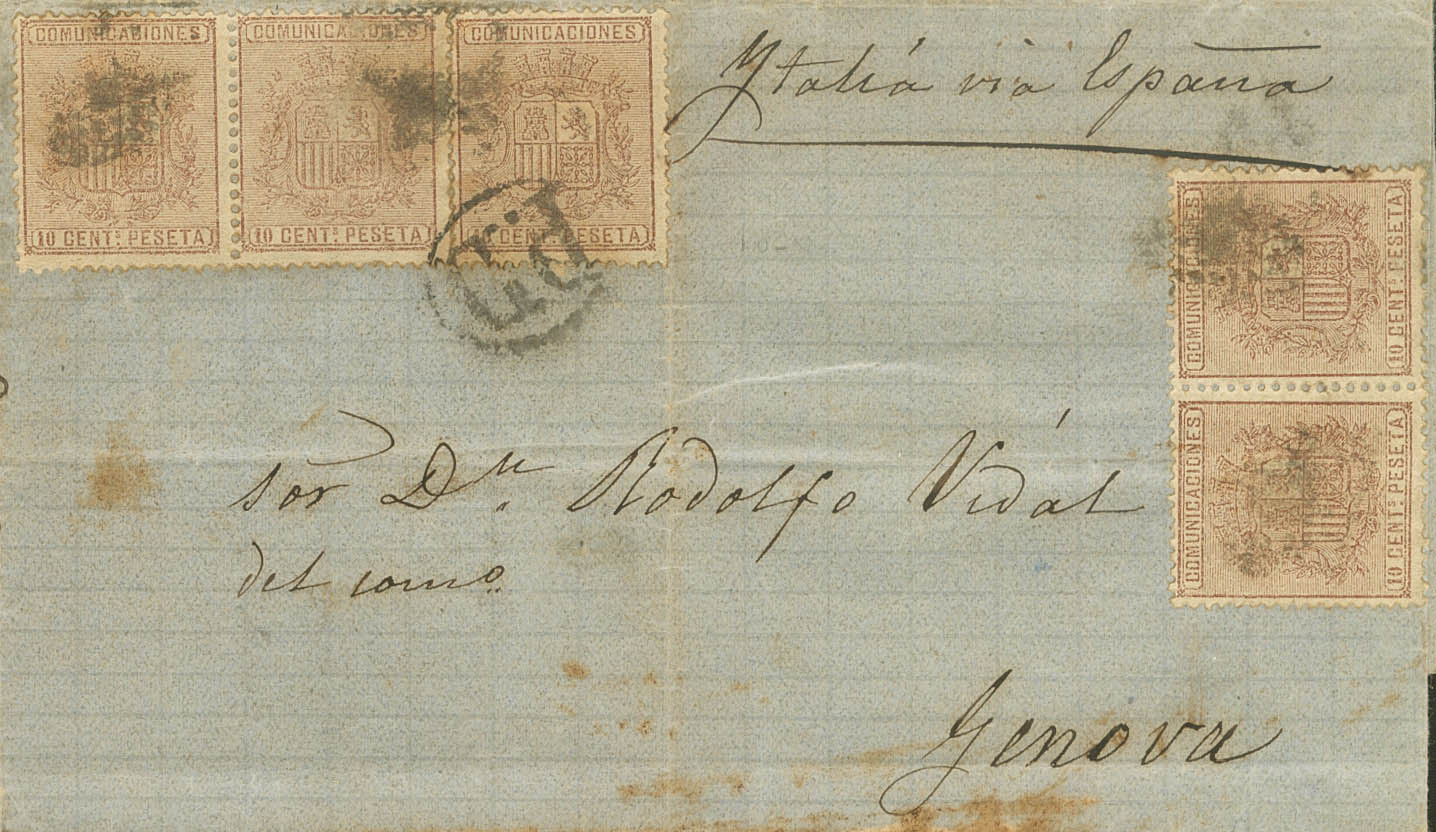 COMUNICACIONES COMUNICACIONES COMUNICACIONES
10 CENTS PESETA 10 CENTS PESETA CENTS PESETA
Ytaliá via España
COMUNICACIONES
10 CENTS PESETA
COMUNICACIONES
10 CENTS PESETA
Sor Dn. Rodolfo Vidál
del como.
Genova